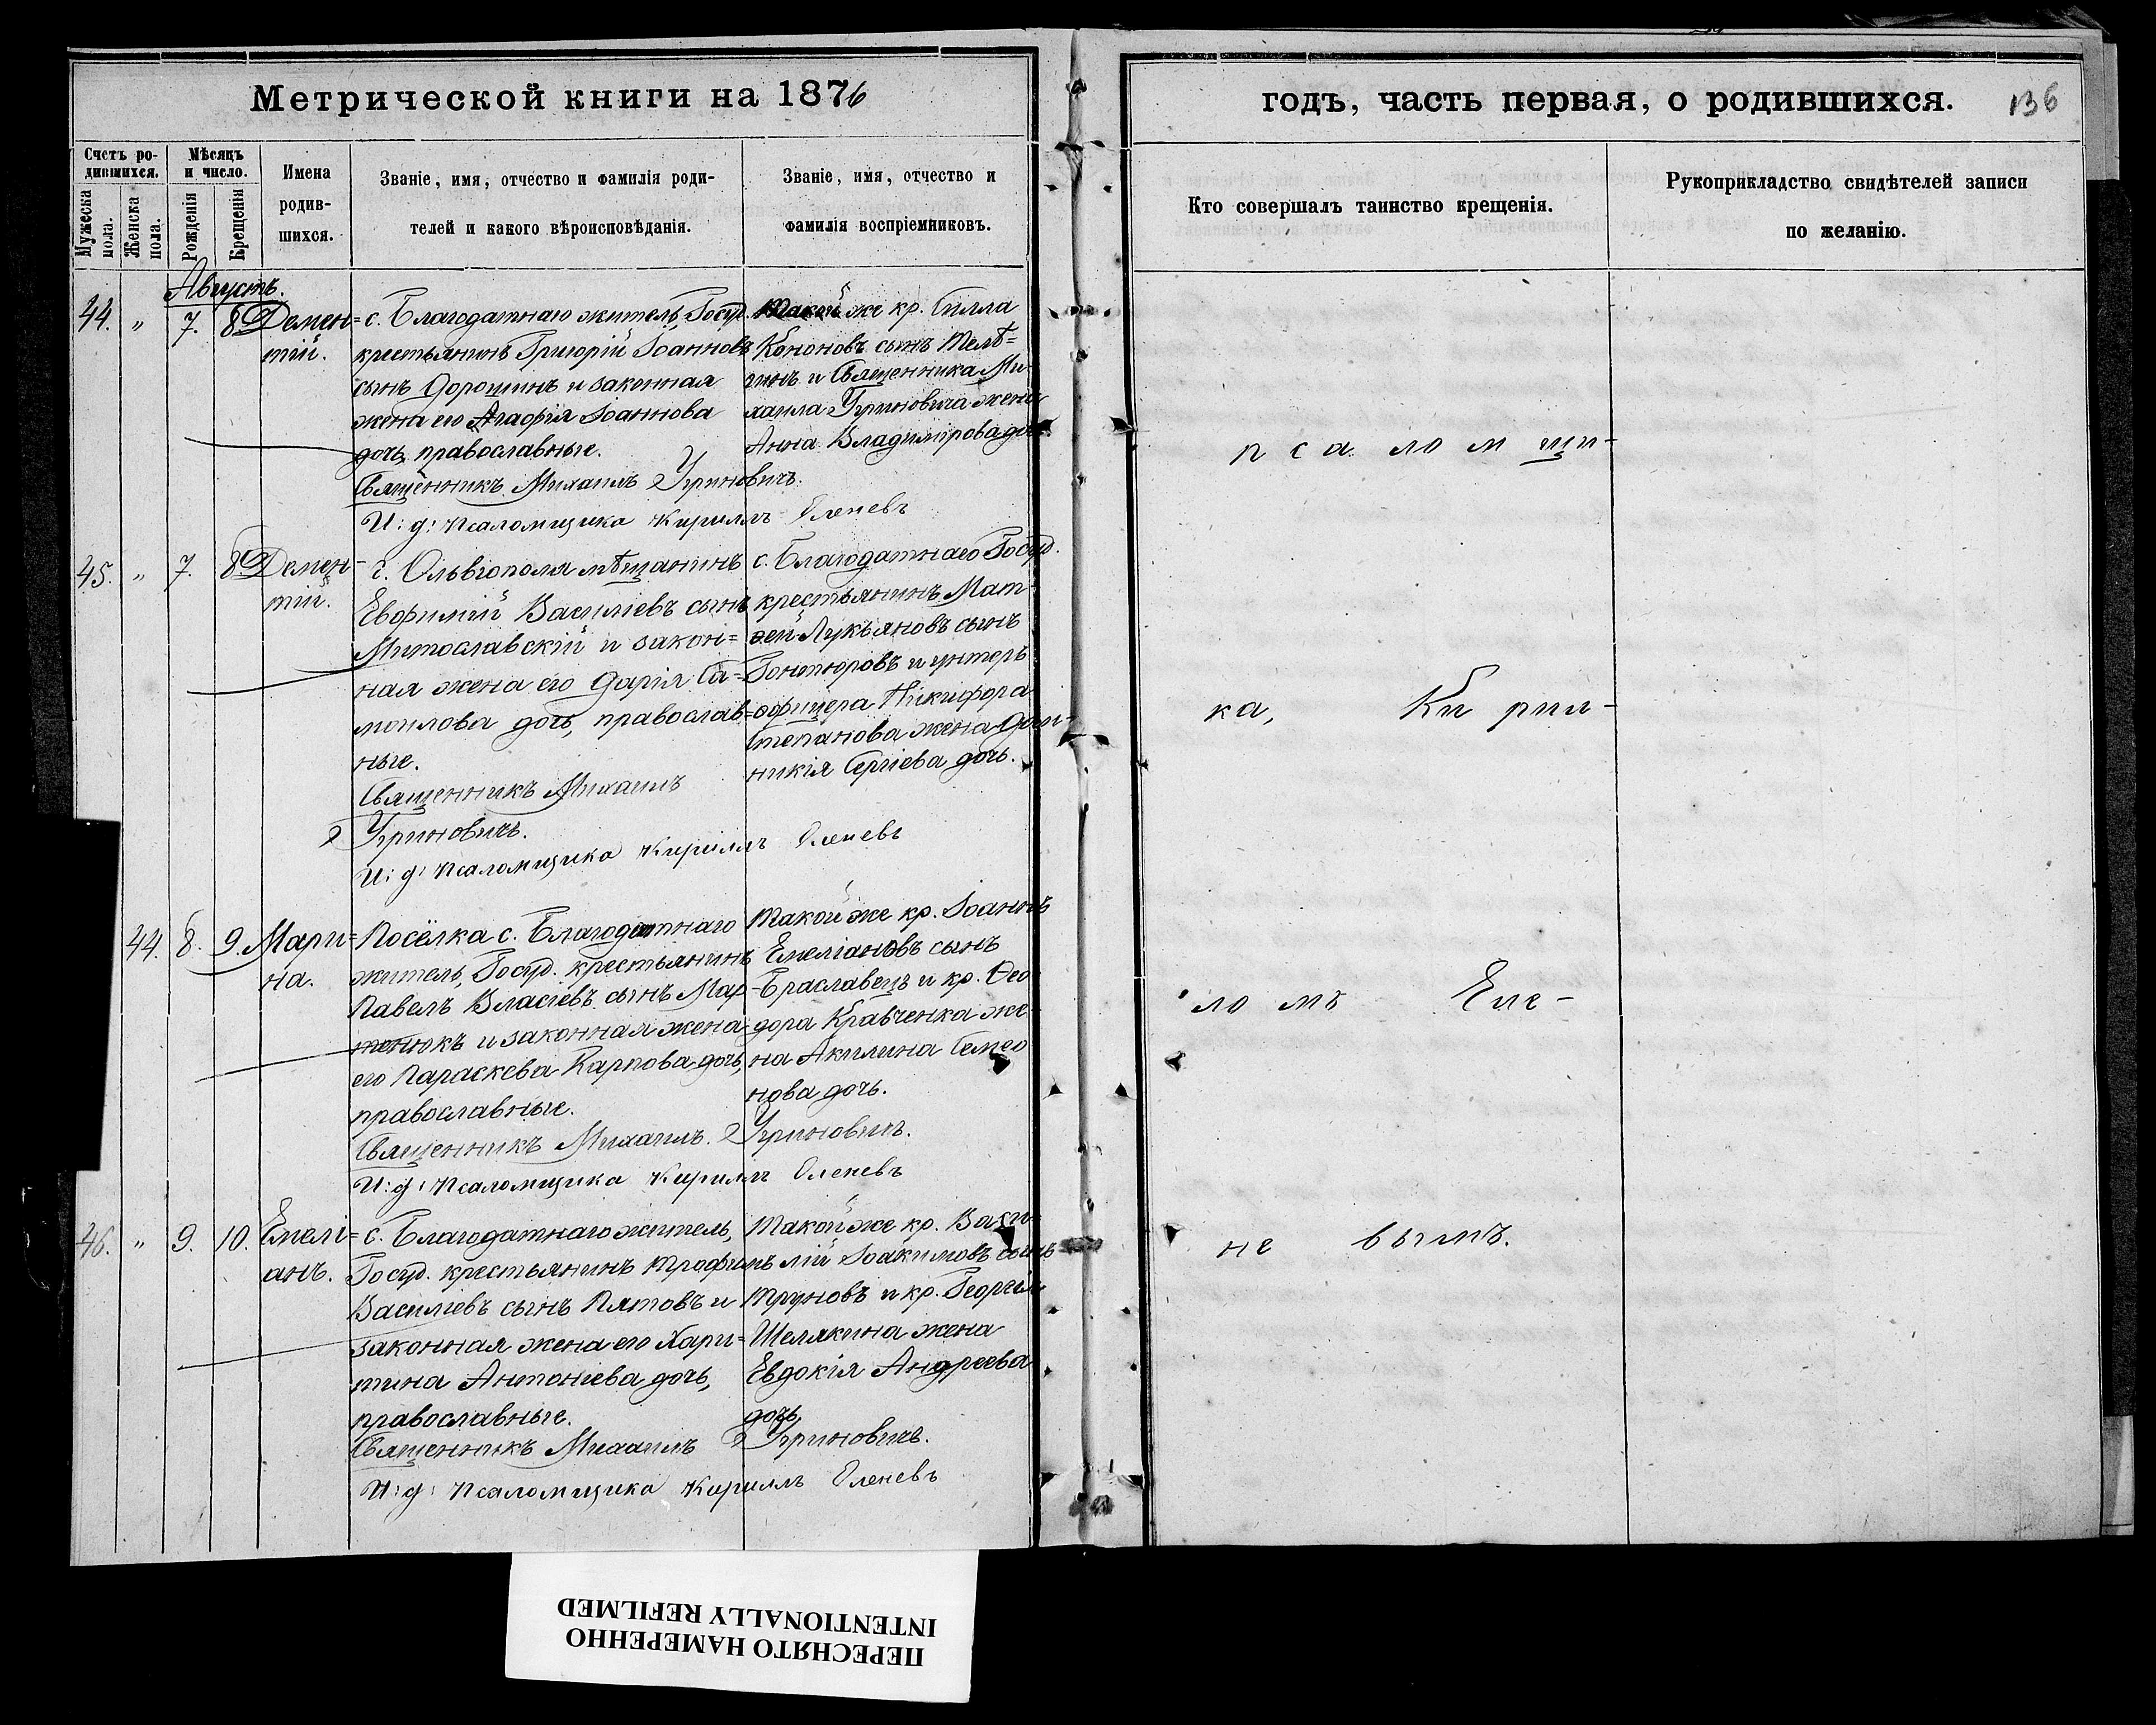 Метрической книги на 1876
Счетъ ро-
дившихся.
Мужеска
пола.
Женска
пола.
Мѣсяцъ
и число.
Рожденія
Крещенія
Имена
родив-
шихся.
Званіе, имя, отчество и фамилія роди-
телей и какого вѣроисповѣданія.
Званіе, имя, отчество и
фамилія воспріемниковъ.
Августъ.
44. " 7. 8
Демен=
тій.
с. Благодатнаго житель, Госуд.
крестьянинъ Григорій Іоанновъ
сынъ Дорошинъ и законная
жена его Агафія Іоаннова
дочь, православные.
Такой же кр. Силла
Кононовъ сынъ Телѣ=
гинъ и Священника Ми-
хаила Угриновича жена
Анна Владимірова дочь.
Священникъ Михаилъ Угриновичъ.
И: д: псаломщика Кириллъ Оленевъ
45. " 7. 8
Демен-
тій.
г. Ольвіополя мѣщанинъ
Евфимій Василіевъ сынъ
Митославскій и закон=
ная жена его Дарія Са=
моилова дочь, православ=
ные.
с. Благодатнаго Госуд.
крестьянинъ Мат-
ѳей Лукьяновъ сынъ
унтеръ
офицера Никифора
Степанова жена Дом-
никія Сергіева дочь.
Священникъ Михаилъ
Угриновичъ.
И: д: псаломщика Кириллъ Оленевъ
44. 8. 9.
Мари=
на.
Посёлка с. Благодатнаго
житель, Госуд. крестьянинъ
Павелъ Власіевъ сынъ Мар-
тенюкъ и законная жена
его Параскева Карпова дочь,
православные.
Такой же кр. Іоаннъ
Емеліановъ сынъ
Браславецъ и кр. Ѳео
дора Кравченка же-
на Акилина Семео
нова дочь.
Священникъ Михаилъ Угриновичъ.
И: д: псаломщика Кириллъ Оленевъ
46. " 9. 10.
Емелі=
анъ.
с. Благодатнаго житель,
Госуд. крестьянинъ Трофимъ
Василіевъ сынъ Пятовъ и
законная жена его Хари=
тина Антоніева дочь,
православные.
Такой же кр. Васи-
лій Іоакимовъ сынъ
Труновъ и кр. Георгія
Шелякина жена
Евдокія Андреева
дочь.
Священникъ Михаилъ Угриновичъ.
И: д: псаломщика Кириллъ Оленевъ
годъ, часть первая, о родившихся.
136
Кто совершалъ таинство крещенія.
Рукоприкладство свидѣтелей записи
по желанію.
п с а ло м щи-
ка, Ки рил-
ло мъ Еле-
не вымъ.
ПЕРЕСНЯТО НАМЕРЕННО
INTENTIONALLY REFILMED